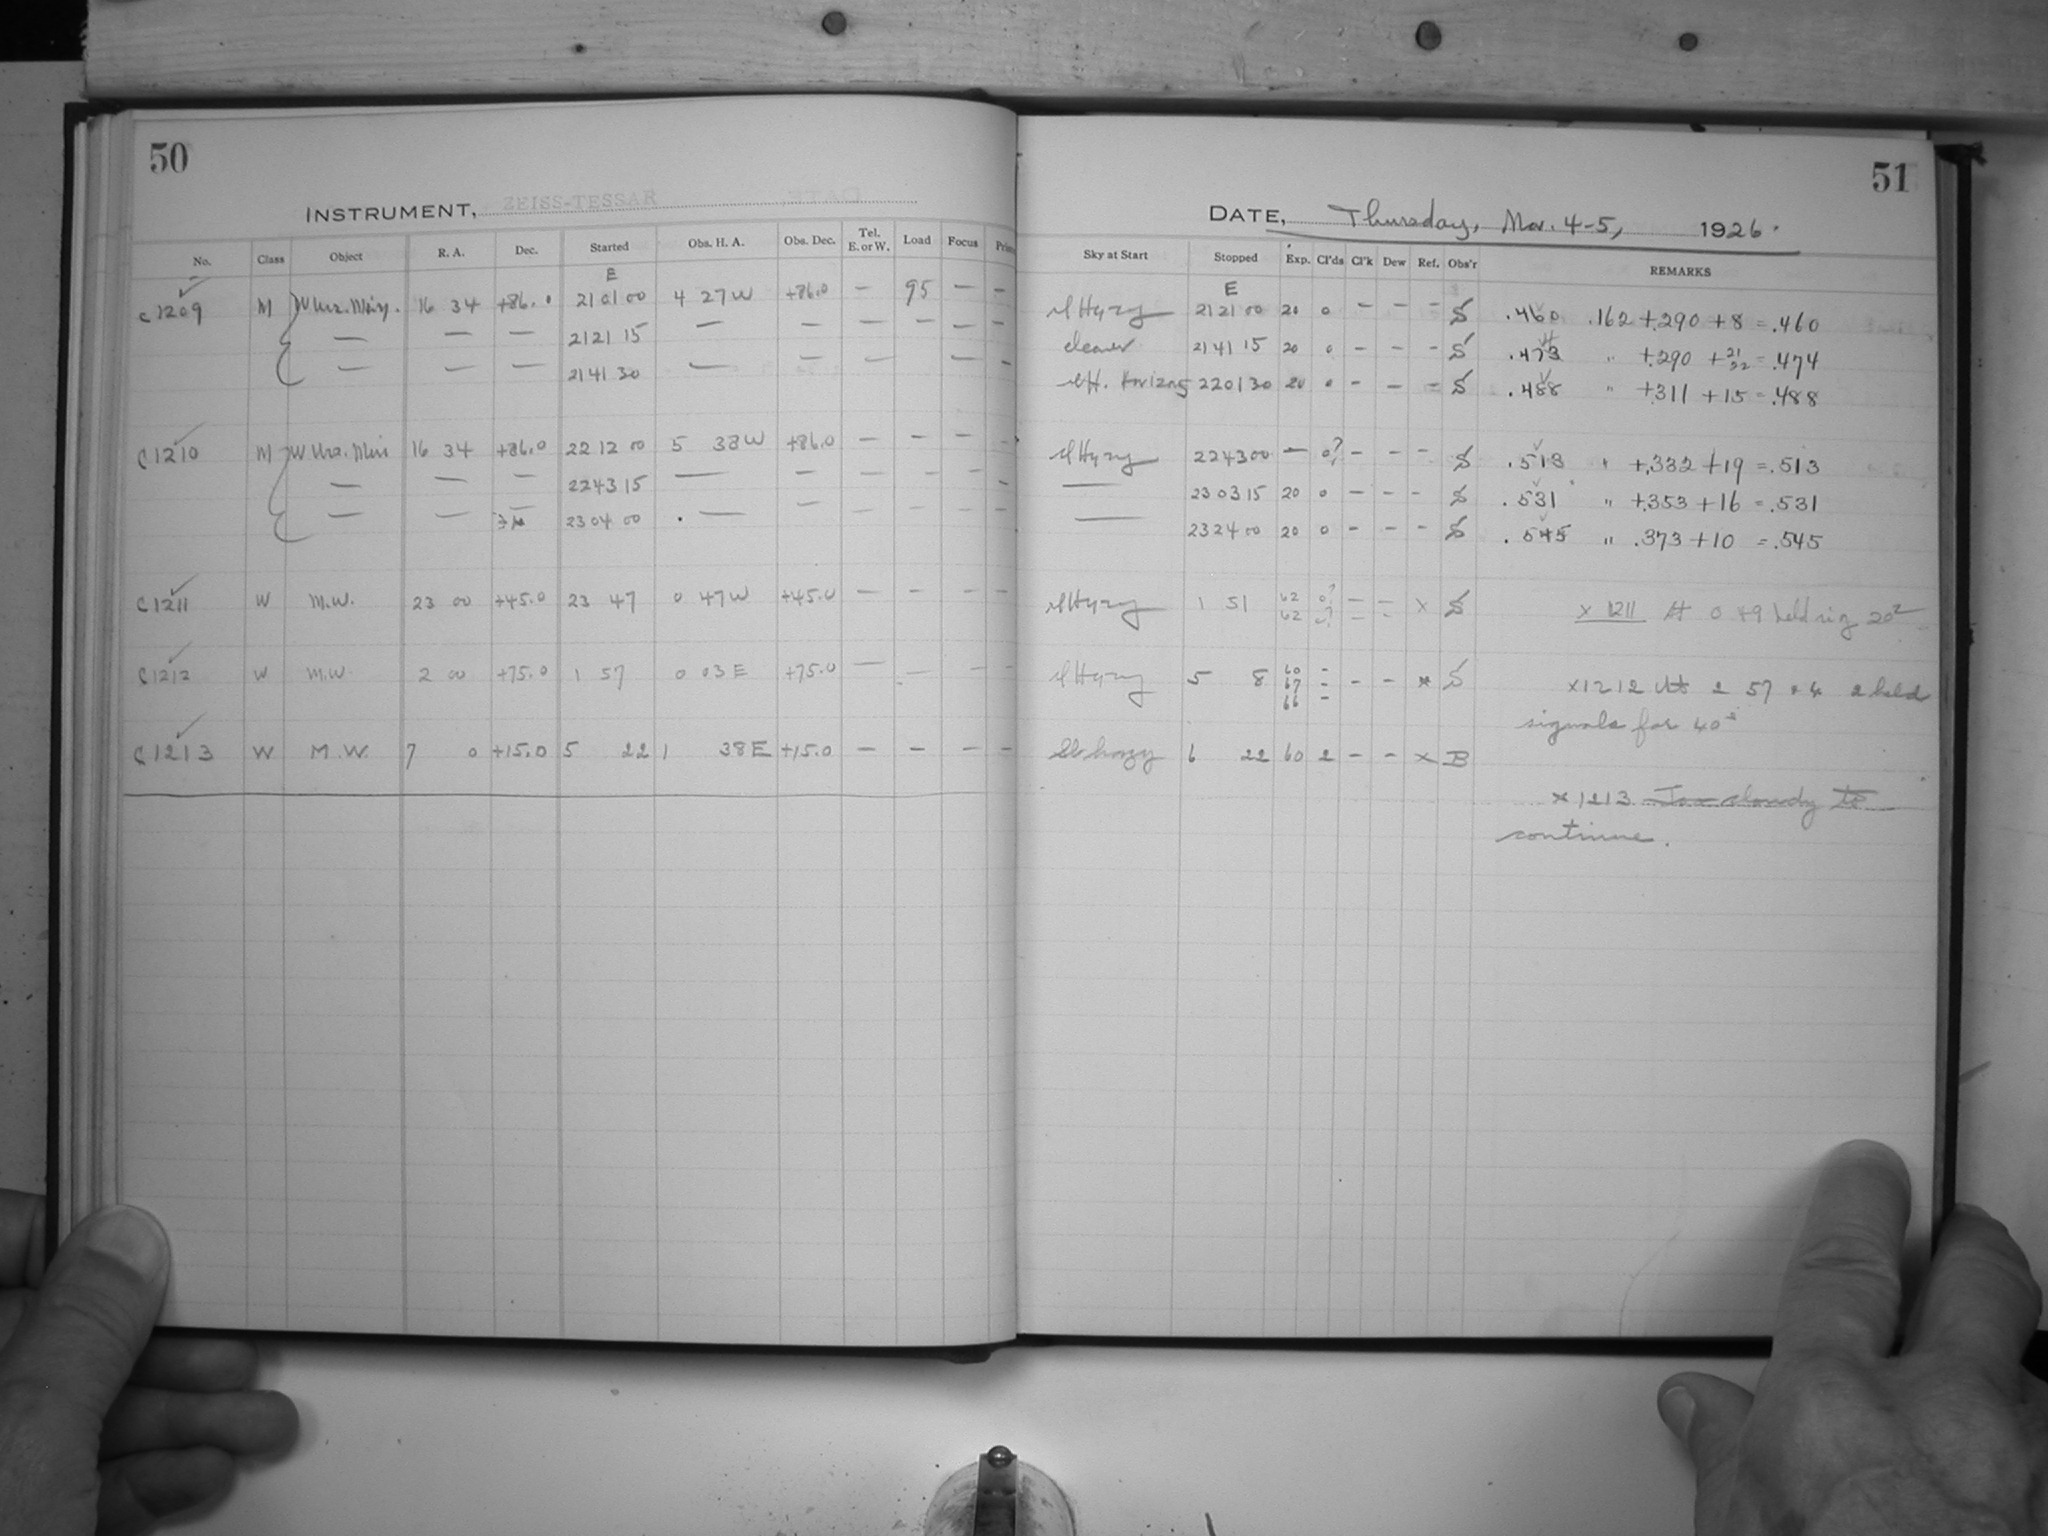 50
INSTRUMENT, ZEISS-TESSAR
No. Class Object R. A. Dec. Started Obs. H. A. Obs. Dec. Tel. E. or W. Load Focus
E
C1209 M W Urs. Min. 16 34 +86.0 21 01 00 4 27 W +86.0 — 95 — —
— — — 21 21 15 — — — — — —
— — — 21 41 30 — — — — —
C1210 M W Urs. Min 16 34 +86.0 22 12 00 5 38 W +86.0 — — — —
— — — 22 43 15 — — — — — —
— — 23 04 00 — —
C1211 W M.W. 23 00 +45.0 23 47 0 47 W +45.0 — — — —
C1212 W M.W. 2 00 +75.0 1 57 0 03 E +75.0 — — — —
C1213 W M.W. 7 0 +15.0 5 22 1 38 E +15.0 — — — —
51
DATE, Thursday, Mar. 4-5, 1926.
Sky at Start Stopped Exp. Cl'ds Cl'k Dew Ref. Obs'r REMARKS
E
sl Hazy 21 21 00 20 0 — — — S .460 .162 +.290 +8 = .460
clear 21 41 15 20 0 — — — S " +.290 + = .474
sl H. Horizon 22 01 30 20 0 — — — S .488 " +.311 +15 = .488
sl Hazy 22 43 00 — 0? — — — S .513 " +.332 +19 = .513
— 23 03 15 20 0 — — — S .531 " +.353 +16 = .531
— 23 24 00 20 0 — — — S .545 " .373 +10 = .545
sl Hazy 1 51 62 0? — — x S x 1211 At 0 49 held sig 20s
62 ? — —
sl Hazy 5 8 60 67 66 — — — — — x S x1212 At 2 57 + 4 2 held
signals for 40s
Sl hazy 6 22 60 2 — — x B
x 1213 Too cloudy to
continue.